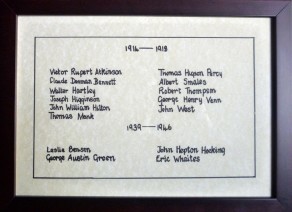 1914 — 1918
Victor Rupert Atkinson
Claude Denman Bennett
Walter Hartley
Joseph Higginson
John William Hilton
Thomas Monk
Thomas Hignon Percy
Albert Smales
Robert Thompson
George Henry Venn
John West
1939 — 1946
Leslie Benson
George Austin Green
John Hepton Hocking
Eric Whaites